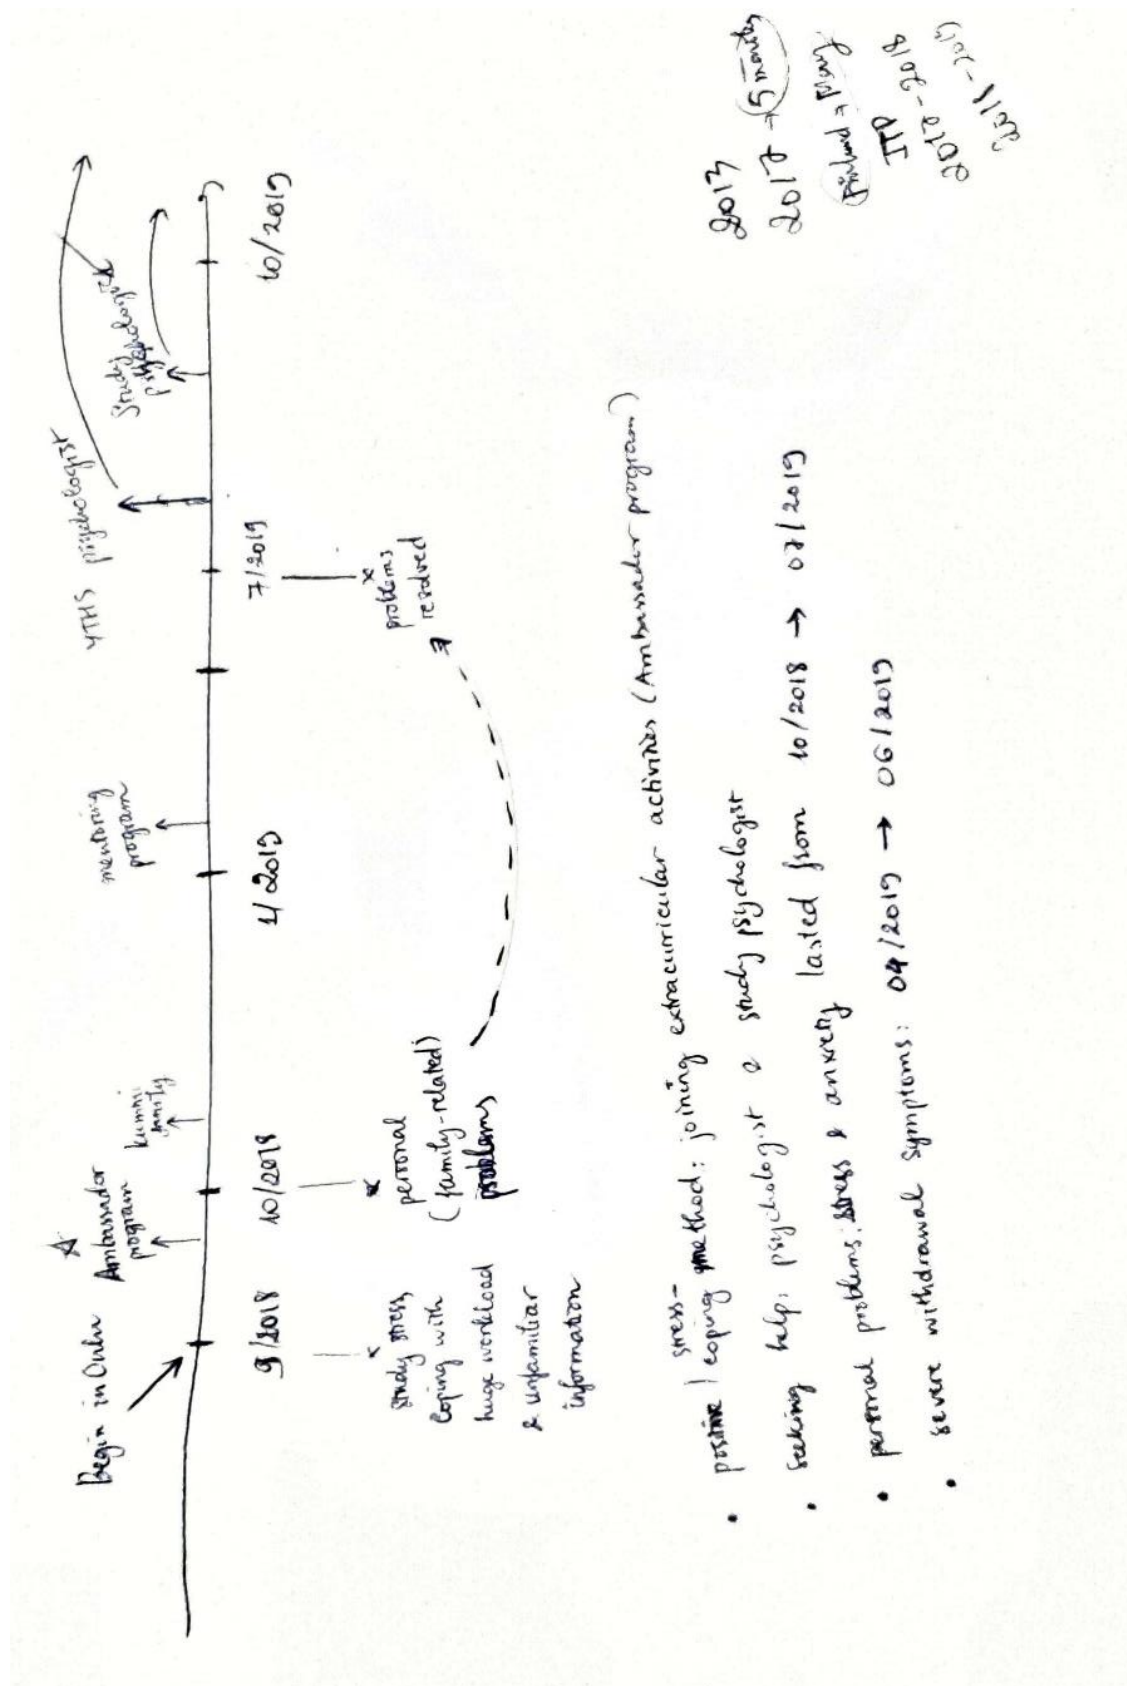 Begin in Oulu
Ambassador
program
kummi
mentoring
program
YTHS psychologist
Study
psychologist
9/2018
10/2018
1/2019
7/2019
10/2019
study stress,
coping with
huge workload
& unfamiliar
information
personal
(family-related)
problems
problems
resolved
• positive / stress-coping method: joining extracurricular activities (Ambassador program)
• seeking help: psychologist & study psychologist
• personal problems: stress & anxiety lasted from 10/2018 → 07/2019
• severe withdrawal symptoms: 04/2019 → 06/2019
2013
2017 → 5 months
Finland →
2017-2018